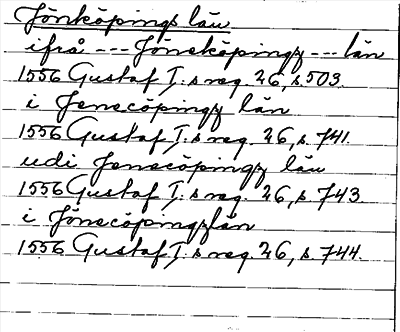 Jönköpings län
ifrå --- Jöneköpingz --- län
1556 Gustaf I:s reg. 26, s. 503.
i Jenecöpingz län
1556 Gustaf I:s reg. 26, s. 741.
udi Jenecöpingz län
1556 Gustaf I:s reg. 26, s. 743.
i Jönecöpingzlän
1556 Gustaf I:s reg. 26, s. 744.